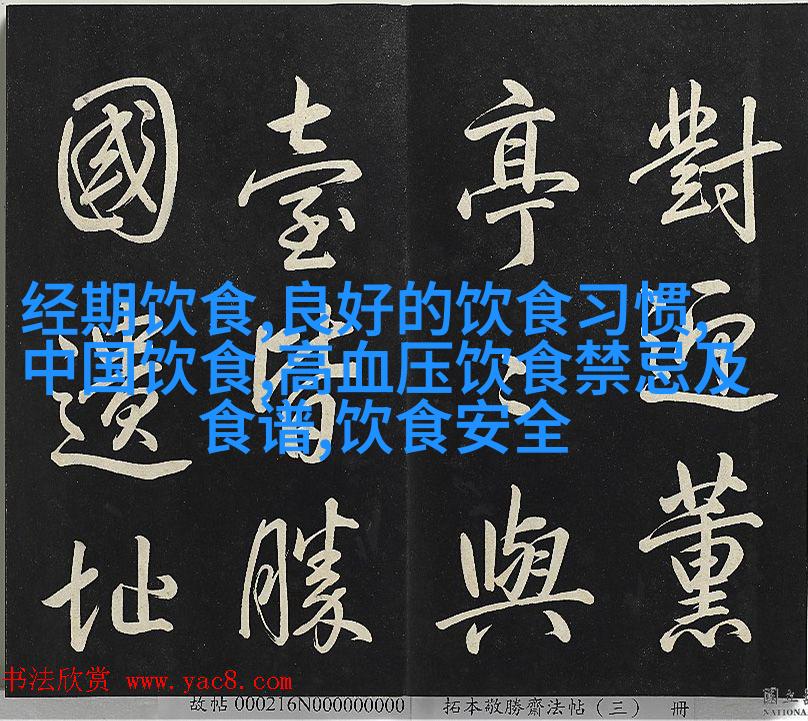 對迎薰
亭與
臺皆勝
國遺址
经期饮食,良好的饮食习惯,
中国饮食,高血压饮食禁忌及
食谱,饮食安全
书法欣赏 www.yac8.com
故帖 000216N000000000 拓本敬勝齋法帖（三） 册
國立
NATIONA